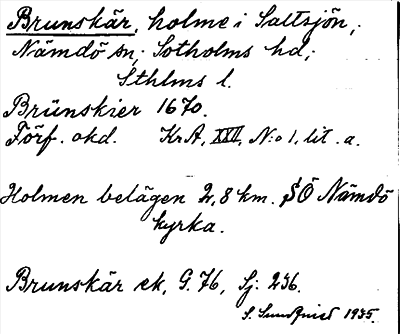 Brunskär, holme i Saltsjön,
Nämdö sn, Sotholms hd,
Sthlms l.
Brünskier 1670.
Förf. okd. KrA, XXII, N:o 1, lit. a.
Holmen belägen 2,8 km. SÖ Nämdö
kyrka.
Brunskär ek, G. 76, Sj: 236.
S. Sundqvist 1935.